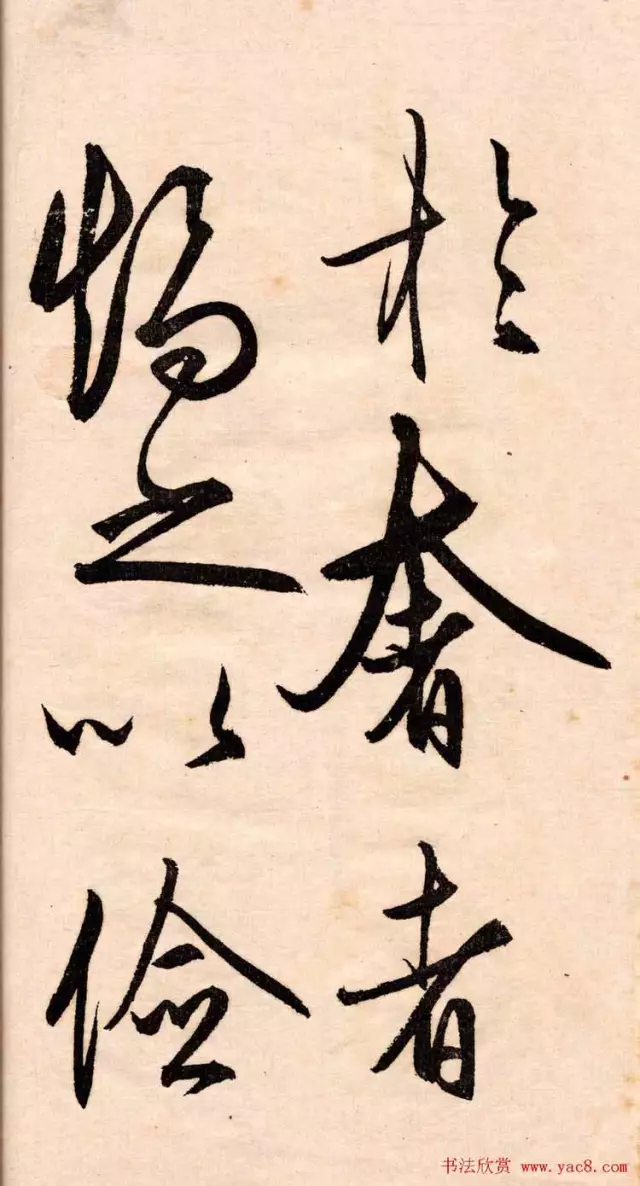 於奢者
矯之以儉
书法欣赏 www.yac8.com